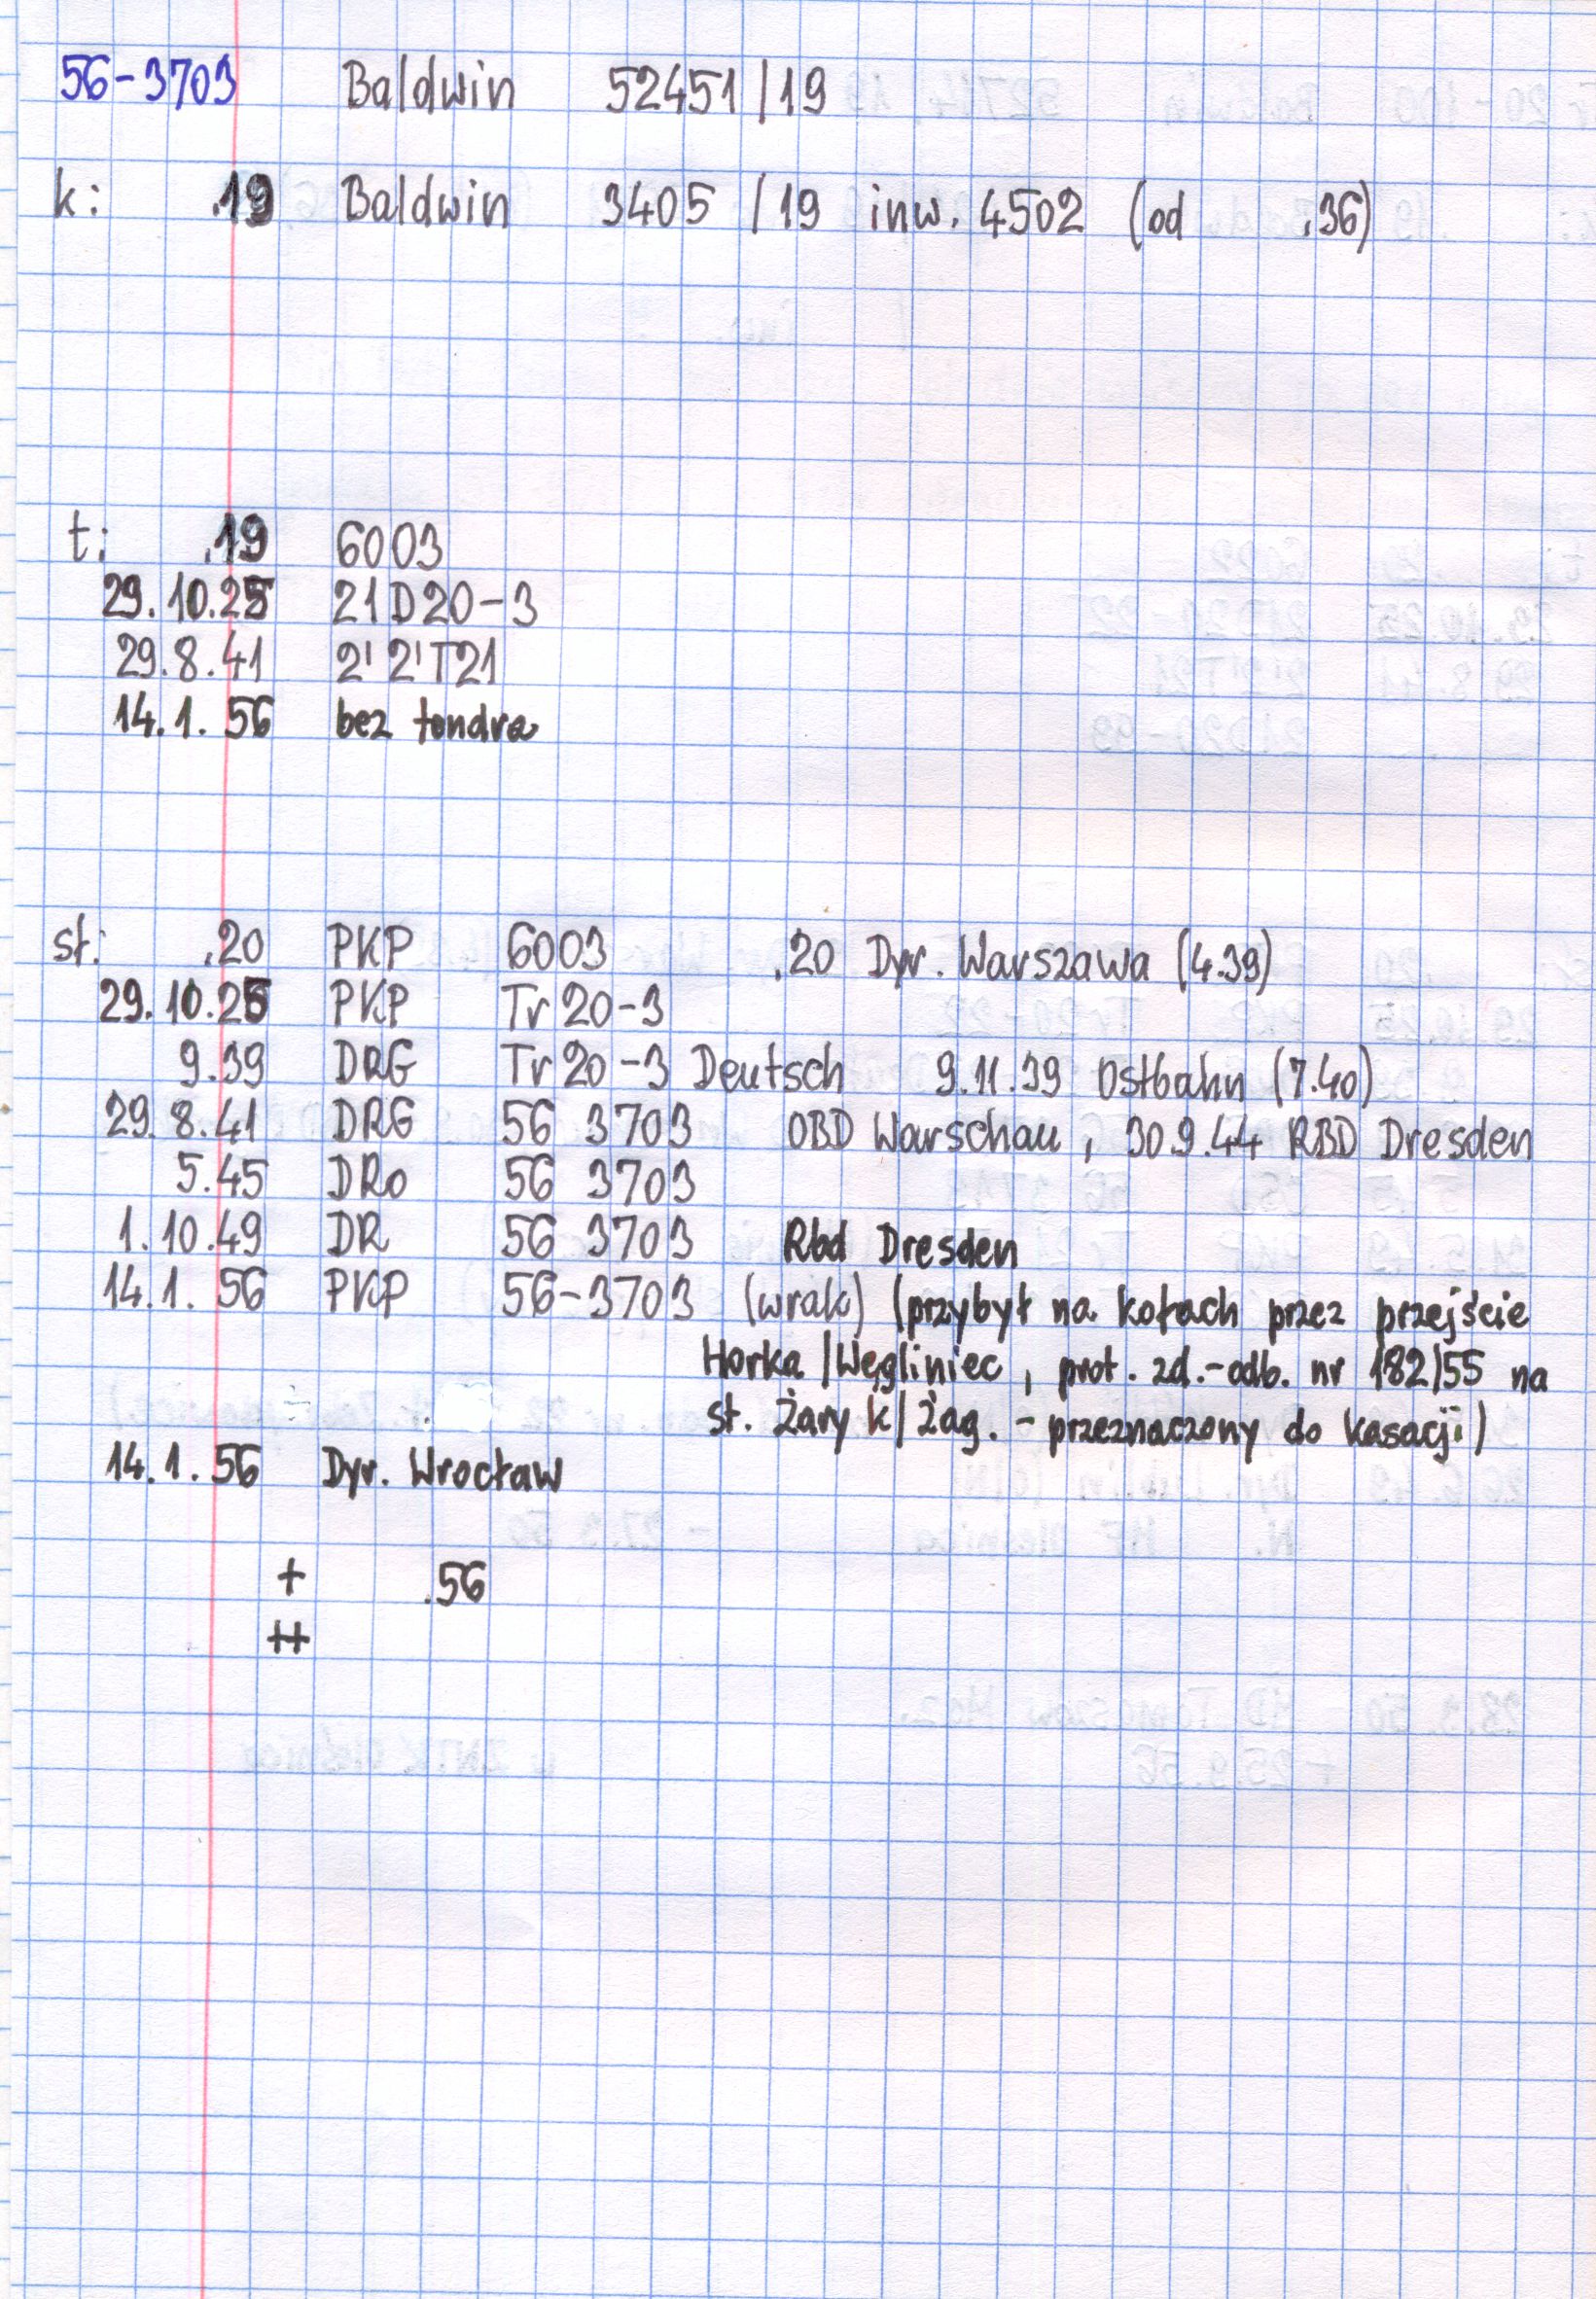 56-3703 Baldwin 52451/19
k: .19 Baldwin 3405 /19 inw. 4502 (od .36)
t: .19 6003
29.10.25 21D20-3
29.8.41 2'2'T21
14.1.56 bez tendra
st: .20 PKP 6003 .20 Dyr. Warszawa (4.39)
29.10.25 PKP Tr20-3
9.39 DRG Tr20-3 Deutsch 9.11.39 Ostbahn (7.40)
29.8.41 DRG 56 3703 OBD Warschau, 30.9.44 RBD Dresden
5.45 DRo 56 3703
1.10.49 DR 56 3703 Rbd Dresden
14.1.56 PKP 56-3703 (wrak) (przybył na kołach przez przejście
Horka/Węgliniec, prot. zd.-odb. nr 182/55 na
st. Żary k/Żag. - przeznaczony do kasacji)
14.1.56 Dyr. Wrocław
+ .56
++